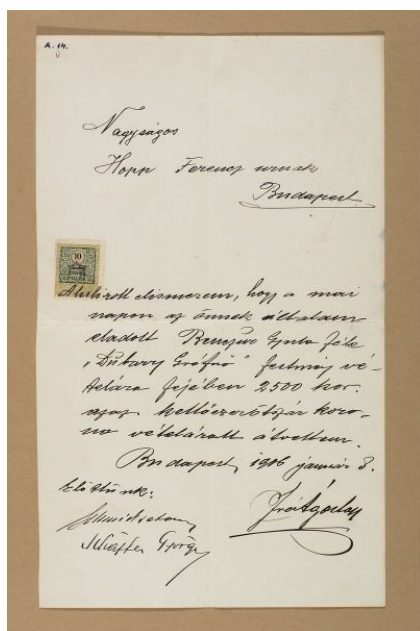 A. 14.
Nagyságos
Hopp Ferencz urnak
Budapest
10
Alulirott elismerem, hogy a mai
napon az önnek általam
eladott Benczur Gyula féle
"Dubarry Grófnö" festmény vé-
telára fejében 2500 kor.
azaz kettőezerötszáz koro-
na vételárat átvettem.
Budapest, 1906 január 3.
Előttünk:
Schäffer György